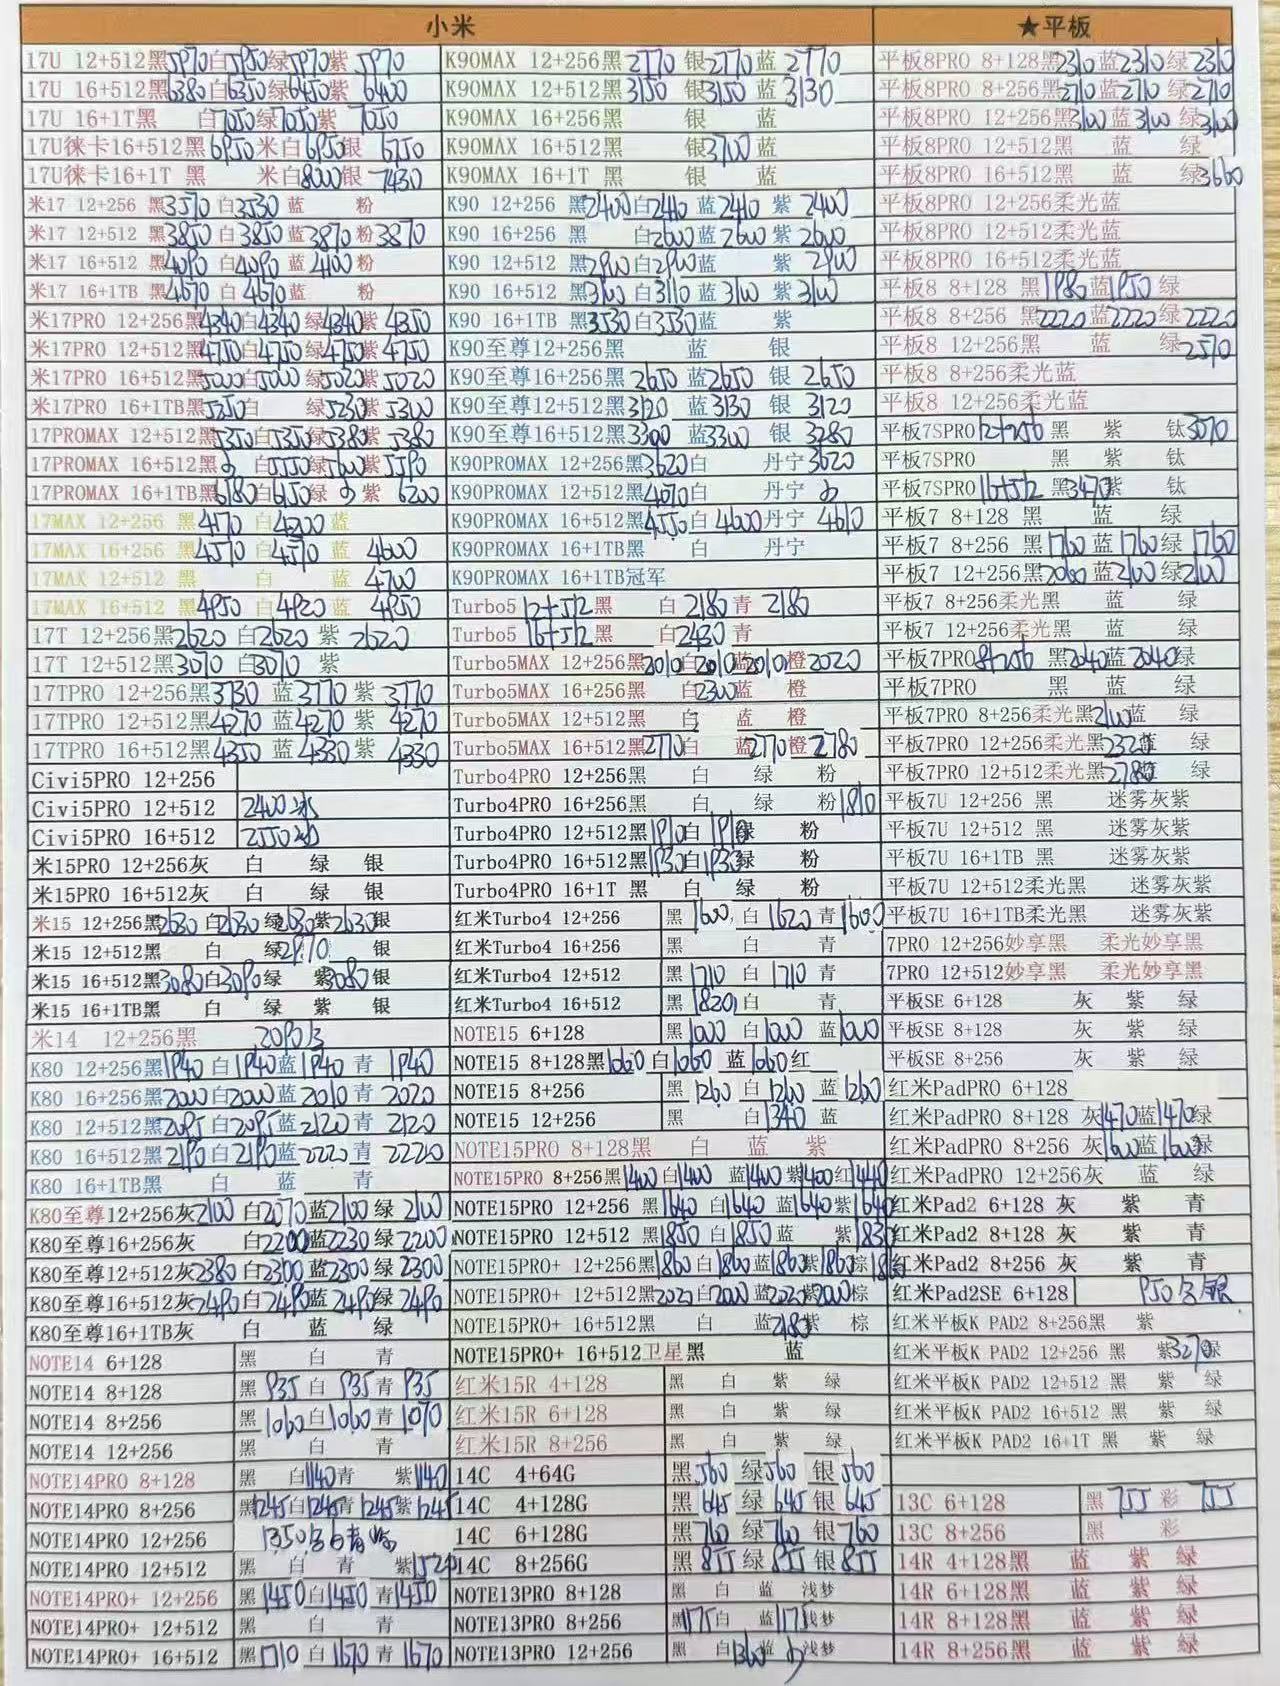 小米
17U 12+512黑5970白5950绿5970紫 5970
17U 16+512黑6380白6350绿6450紫 6400
17U 16+1T黑 白7050绿7050紫 7050
17U徕卡16+512黑6950米白6950银 6750
17U徕卡16+1T 黑 米白8000银 7430
米17 12+256 黑3570白3530蓝 粉
米17 12+512 黑3850白3850蓝3870粉3870
米17 16+512 黑4090白4090蓝4100粉
米17 16+1TB 黑4670白4670蓝 粉
米17PRO 12+256黑4340白4340绿4340紫 4350
米17PRO 12+512黑4750白4750绿4750紫 4750
米17PRO 16+512黑5000白5000绿5020紫 5020
米17PRO 16+1TB黑5250白 绿5230紫 5300
17PROMAX 12+512黑5350白5350绿5380紫 5380
17PROMAX 16+512黑 白5550绿5600紫 5590
17PROMAX 16+1TB黑6180白6150绿 紫 6200
17MAX 12+256 黑4170白4200蓝
17MAX 16+256 黑4570白4570蓝 4600
17MAX 12+512 黑 白 蓝 4700
17MAX 16+512 黑4950白4920蓝 4950
17T 12+256黑2620 白2620 紫 2620
17T 12+512黑3070 白3070 紫
17TPRO 12+256黑3730 蓝3770 紫 3770
17TPRO 12+512黑4270 蓝4270 紫 4270
17TPRO 16+512黑4350 蓝4330 紫 4330
Civi5PRO 12+256
Civi5PRO 12+512 2400冰
Civi5PRO 16+512 2550冰
米15PRO 12+256灰 白 绿 银
米15PRO 16+512灰 白 绿 银
米15 12+256黑2630白2630绿2630紫2630银
米15 12+512黑 白 绿2970 银
米15 16+512黑3080白3090绿 紫3080银
米15 16+1TB黑 白 绿 紫 银
米14 12+256黑 2090
K80 12+256黑1940白1940蓝1940青 1940
K80 16+256黑2000白2000蓝2010青 2020
K80 12+512黑2095白2095蓝2120青 2120
K80 16+512黑2190白2190蓝2220青 2220
K80 16+1TB黑 白 蓝 青
K80至尊12+256灰2100 白2070蓝2100绿 2100
K80至尊16+256灰 白2200蓝2230绿 2200
K80至尊12+512灰2380白2300蓝2300绿 2300
K80至尊16+512灰2490白2490蓝2490绿 2490
K80至尊16+1TB灰 白 蓝 绿
NOTE14 6+128 黑 白 青
NOTE14 8+128 黑 935白 935青 935
NOTE14 8+256 黑1060白1060青1070
NOTE14 12+256 黑 白 青
NOTE14PRO 8+128 黑 白1140青 紫1140
NOTE14PRO 8+256 黑1245白1245青1245紫1245
NOTE14PRO 12+256 1350
NOTE14PRO 12+512 黑 白 青 紫1520
NOTE14PRO+ 12+256 黑1450白1450青1450
NOTE14PRO+ 12+512 黑 白 青
NOTE14PRO+ 16+512 黑1710白1670青1670
K90MAX 12+256黑2770 银2770蓝 2770
K90MAX 12+512黑3150 银3150蓝 3130
K90MAX 16+256黑 银 蓝
K90MAX 16+512黑 银3700蓝
K90MAX 16+1T 黑 银 蓝
K90 12+256 黑2400白2410蓝2410紫 2400
K90 16+256 黑 白2600蓝2600紫 2600
K90 12+512 黑2900白2900蓝 紫 2900
K90 16+512 黑3100白3110蓝3100紫 3100
K90 16+1TB 黑3530白3530蓝 紫
K90至尊12+256黑 蓝 银
K90至尊16+256黑2650蓝2650银 2650
K90至尊12+512黑3120蓝3130银 3120
K90至尊16+512黑3300蓝3300银 3280
K90PROMAX 12+256黑3620白 丹宁3620
K90PROMAX 12+512黑4070白 丹宁
K90PROMAX 16+512黑4550白4600丹宁 4610
K90PROMAX 16+1TB黑 白 丹宁
K90PROMAX 16+1TB冠军
Turbo5 12+512黑 白2180青 2180
Turbo5 16+512黑 白2430青
Turbo5MAX 12+256黑2010白2010蓝2010橙2020
Turbo5MAX 16+256黑 白2300蓝 橙
Turbo5MAX 12+512黑 白 蓝 橙
Turbo5MAX 16+512黑2770白 蓝2770橙2780
Turbo4PRO 12+256黑 白 绿 粉
Turbo4PRO 16+256黑 白 绿 粉1810
Turbo4PRO 12+512黑1910白1910绿 粉
Turbo4PRO 16+512黑1930白1930绿 粉
Turbo4PRO 16+1T 黑 白 绿 粉
红米Turbo4 12+256 黑 1600白 1620青1600
红米Turbo4 16+256 黑 白 青
红米Turbo4 12+512 黑 1710白 1710青
红米Turbo4 16+512 黑 1820白 青
NOTE15 6+128 黑1000白1000蓝1000
NOTE15 8+128黑1060白1060 蓝1060红
NOTE15 8+256 黑 1260白1260蓝1260
NOTE15 12+256 黑 白1340蓝
NOTE15PRO 8+128黑 白 蓝 紫
NOTE15PRO 8+256黑1400白1400 蓝1400紫1400红1440
NOTE15PRO 12+256 黑1640白1640蓝1640紫1640
NOTE15PRO 12+512 黑1850白1850蓝 紫1830
NOTE15PRO+ 12+256黑1860白1860蓝1860紫1860棕
NOTE15PRO+ 12+512黑2020白2000蓝2020紫2000棕
NOTE15PRO+ 16+512黑 白 蓝2180紫 棕
NOTE15PRO+ 16+512卫星黑 蓝
红米15R 4+128 黑 白 紫 绿
红米15R 6+128 黑 白 紫 绿
红米15R 8+256 黑 白 紫 绿
14C 4+64G 黑560绿560银560
14C 4+128G 黑645绿645银645
14C 6+128G 黑760绿760银760
14C 8+256G 黑855绿855银855
NOTE13PRO 8+128 黑 白 蓝 浅梦
NOTE13PRO 8+256 黑1175白 蓝1175浅梦
NOTE13PRO 12+256 黑 白1360蓝 浅梦
★平板
平板8PRO 8+128黑2310蓝2310绿2310
平板8PRO 8+256黑2710蓝2710绿2710
平板8PRO 12+256黑3100蓝3100绿3100
平板8PRO 12+512黑 蓝 绿
平板8PRO 16+512黑 蓝 绿3660
平板8PRO 12+256柔光蓝
平板8PRO 12+512柔光蓝
平板8PRO 16+512柔光蓝
平板8 8+128 黑1980蓝1950绿
平板8 8+256 黑2220蓝2220绿2220
平板8 12+256黑 蓝 绿2570
平板8 8+256柔光蓝
平板8 12+256柔光蓝
平板7SPRO12+256 黑 紫 钛3070
平板7SPRO 黑 紫 钛
平板7SPRO16+512 黑3470紫 钛
平板7 8+128 黑 蓝 绿
平板7 8+256 黑1760蓝1760绿1760
平板7 12+256黑2080蓝2100绿2100
平板7 8+256柔光黑 蓝 绿
平板7 12+256柔光黑 蓝 绿
平板7PRO8+256 黑2040蓝2040绿
平板7PRO 黑 蓝 绿
平板7PRO 8+256柔光黑2100蓝 绿
平板7PRO 12+256柔光黑2320蓝 绿
平板7PRO 12+512柔光黑2780蓝 绿
平板7U 12+256 黑 迷雾灰紫
平板7U 12+512 黑 迷雾灰紫
平板7U 16+1TB 黑 迷雾灰紫
平板7U 12+512柔光黑 迷雾灰紫
平板7U 16+1TB柔光黑 迷雾灰紫
7PRO 12+256妙享黑 柔光妙享黑
7PRO 12+512妙享黑 柔光妙享黑
平板SE 6+128 灰 紫 绿
平板SE 8+128 灰 紫 绿
平板SE 8+256 灰 紫 绿
红米PadPRO 6+128
红米PadPRO 8+128 灰1470蓝1470绿
红米PadPRO 8+256 灰1600蓝1600绿
红米PadPRO 12+256灰 蓝 绿
红米Pad2 6+128 灰 紫 青
红米Pad2 8+128 灰 紫 青
红米Pad2 8+256 灰 紫 青
红米Pad2SE 6+128 950 银
红米平板K PAD2 8+256黑 紫
红米平板K PAD2 12+256 黑 紫3270绿
红米平板K PAD2 12+512 黑 紫 绿
红米平板K PAD2 16+512 黑 紫 绿
红米平板K PAD2 16+1T 黑 紫 绿
13C 6+128 黑 755 彩 755
13C 8+256 黑 彩
14R 4+128黑 蓝 紫 绿
14R 6+128黑 蓝 紫 绿
14R 8+128黑 蓝 紫 绿
14R 8+256黑 蓝 紫 绿